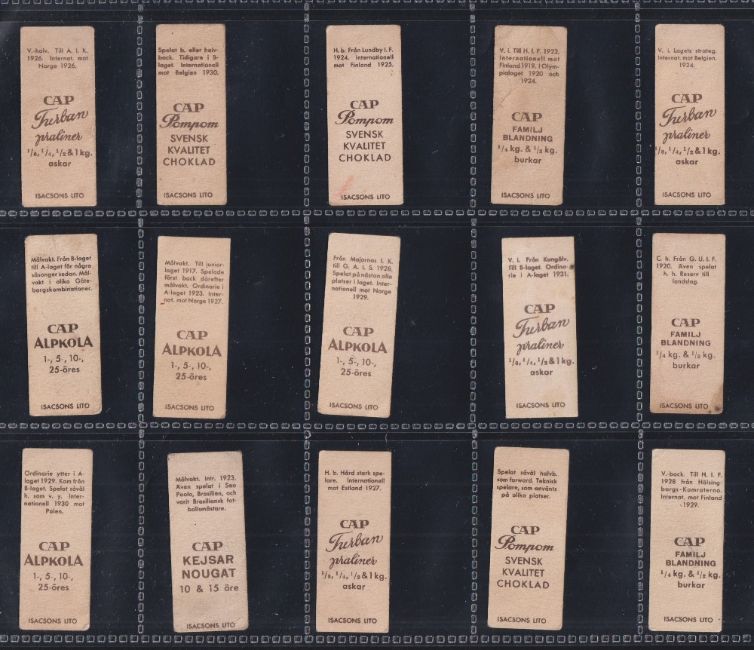 V.-halv. Till A. I. K.
1926. Internat. mot
Norge 1926.
CAP
Turban
praliner
1/8, 1/4, 1/2 & 1 kg.
askar
ISACSONS LITO
Spelat h. eller halv-
back. Tidigare i B-
laget. Internationell
mot Belgien 1930.
CAP
Pompom
SVENSK
KVALITET
CHOKLAD
ISACSONS LITO
H. b. Från Lundby I. F.
1924. Internationell
mot Finland 1925.
CAP
Pompom
SVENSK
KVALITET
CHOKLAD
ISACSONS LITO
V. i. Till H. I. F. 1923.
Internationell mot
Finland 1919. I Olym-
pialaget 1920 och
1924.
CAP
FAMILJ
BLANDNING
1/4 kg. & 1/2 kg.
burkar
ISACSONS LITO
V. i. Lagets strateg.
Internat. mot Belgien.
1924.
CAP
Turban
praliner
1/8, 1/4, 1/2 & 1 kg.
askar
ISACSONS LITO
Målvakt. Från B-laget
till A-laget för några
säsonger sedan. Mål-
vakt i olika Göte-
borgskombinationer.
CAP
ALPKOLA
1-, 5-, 10-,
25-öres
ISACSONS LITO
Målvakt. Till junior-
laget 1917. Spelade
först back därefter
målvakt. Ordinarie i
A-laget 1923. Inter-
nat. mot Norge 1927.
CAP
ALPKOLA
1-, 5-, 10-,
25-öres
ISACSONS LITO
Från Majornas I. K.
till G. A. I. S. 1926.
Spelat på nästan alla
platser i laget. Inter-
nationell mot Norge
1929.
CAP
ALPKOLA
1-, 5-, 10-,
25-öres
ISACSONS LITO
V. i. Från Kungälv.
Till B-laget. Ordina-
rie i A-laget 1931.
CAP
Turban
praliner
1/8, 1/4, 1/2 & 1 kg.
askar
ISACSONS LITO
C. h. Från G. U. I. F.
1920. Även spelat
h. h. Reserv till
landslag.
CAP
FAMILJ
BLANDNING
1/4 kg. & 1/2 kg.
burkar
ISACSONS LITO
Ordinarie ytter i A-
laget 1929. Kom från
B-laget. Spelat såväl
h. som v. y. Inter-
nationell 1930 mot
Polen.
CAP
ALPKOLA
1-, 5-, 10-,
25-öres
ISACSONS LITO
Målvakt. Intr. 1923.
Även spelat i Sao
Paolo, Brasilien, och
varit Brasiliansk fot-
bollsmästare.
CAP
KEJSAR
NOUGAT
10 & 15 öre
ISACSONS LITO
H. b. Hård stark spe-
lare. Internationell
mot Estland 1927.
CAP
Turban
praliner
1/8, 1/4, 1/2 & 1 kg.
askar
ISACSONS LITO
Spelat såväl halvb.
som forward. Teknisk
spelare, som använts
på olika platser.
CAP
Pompom
SVENSK
KVALITET
CHOKLAD
ISACSONS LITO
V.-back. Till H. I. F.
1928 från Hälsing-
borgs-Kamraterna.
Internat. mot Finland
1929.
CAP
FAMILJ
BLANDNING
1/4 kg. & 1/2 kg.
burkar
ISACSONS LITO